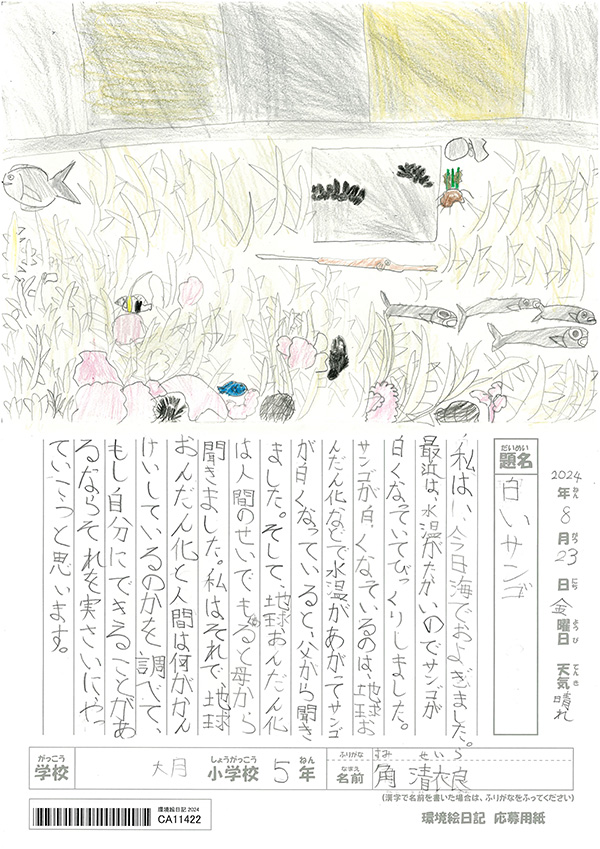 2024年8月23日金曜日 天気晴れ
ねん がつ にち ようび てんき
題名 白いサンゴ
だいめい
私は、今日海でおよぎました。
最近は、水温がたかいのでサンゴが
白くなっていてびっくりしました。
サンゴが白くなっているのは、地球お
んだん化などで水温があがってサンゴ
が白くなっていると、父から聞き
ました。そして、地球おんだん化
は人間のせいでもあると母から
聞きました。私はそれで、地球
おんだん化と人間は何がかん
けいしているのかを調べて、
もし自分にできることがあ
るならそれを実さいにやっ
ていこうと思います。
がっこう しょうがっこう ねん
学校 大月 小学校 5年
ふりがな すみ せいら
なまえ
名前 角 清衣良
(漢字で名前を書いた場合は、ふりがなをふってください)
環境絵日記 2024
CA11422
環境絵日記 応募用紙